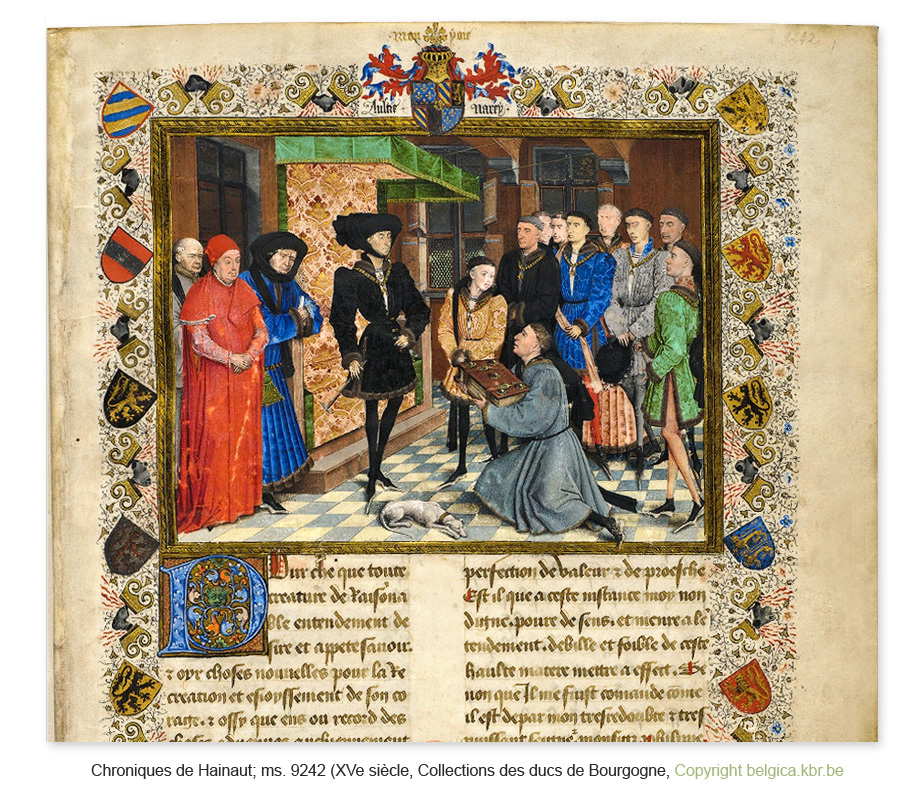 Mon joie
9242
Aultre narey
Pur che que toute
creature de Raisona
ble entendement de
sire et appete sauoir.
⁊ oyr choses nouuelles pour la Re
creation et esioyssement de son co
rage. ⁊ ossy que ens ou record des
perfection de valeur ⁊ de proesche
Est il que a ceste instance moy non
digne. poure de sens. et menre a lē
tendement. debille et foible de ceste
haulte matere mettre a effect. Se
non que Il me fuist comande come
il est de par mon tresredoubte ⁊ tres
Chroniques de Hainaut; ms. 9242 (XVe siècle, Collections des ducs de Bourgogne, Copyright belgica.kbr.be